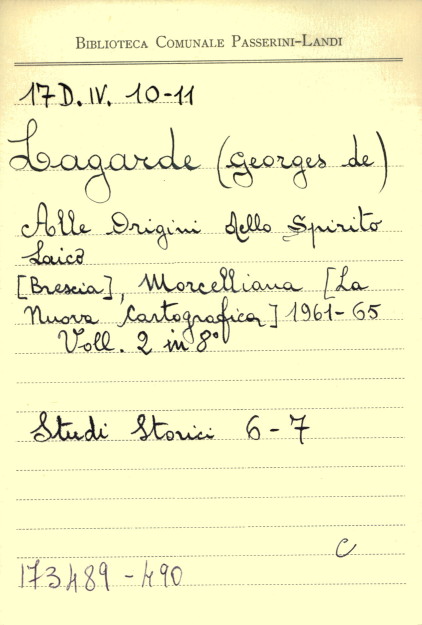 BIBLIOTECA COMUNALE PASSERINI-LANDI
17 D. IV. 10-11
Lagarde (Georges de)
Alle Origini dello Spirito
Laico
[Brescia], Morcelliana [La
Nuova Cartografica] 1961-65
Voll. 2 in 8°
Studi Storici 6-7
C
173489-490